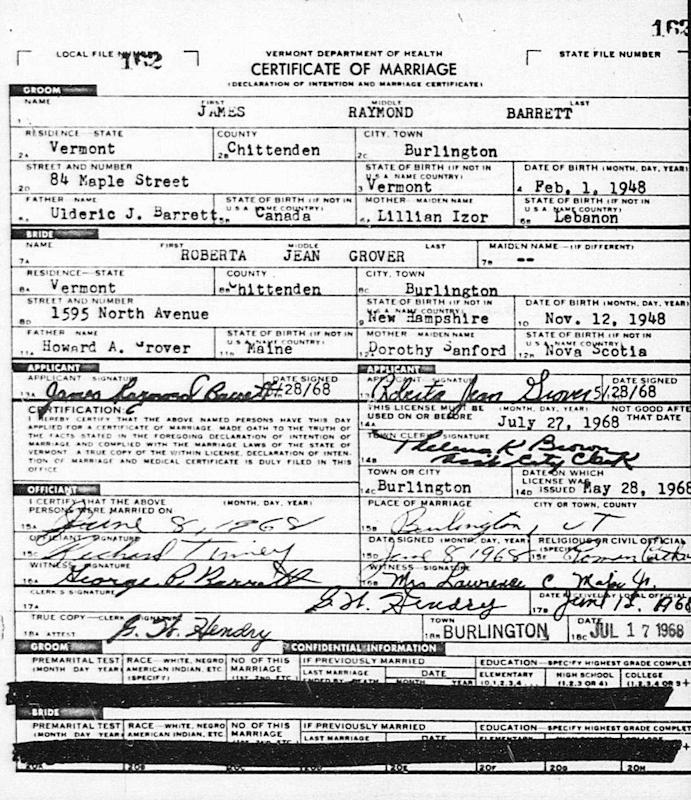 163
LOCAL FILE NUMBER 162 VERMONT DEPARTMENT OF HEALTH STATE FILE NUMBER
CERTIFICATE OF MARRIAGE
(DECLARATION OF INTENTION AND MARRIAGE CERTIFICATE)
GROOM
NAME FIRST MIDDLE LAST
1 JAMES RAYMOND BARRETT
RESIDENCE—STATE COUNTY CITY, TOWN
2A Vermont 2B Chittenden 2C Burlington
STREET AND NUMBER STATE OF BIRTH (IF NOT IN U S A NAME COUNTRY) DATE OF BIRTH (MONTH, DAY, YEAR)
2D 84 Maple Street 3 Vermont 4 Feb. 1, 1948
FATHER NAME STATE OF BIRTH (IF NOT IN U S A NAME COUNTRY) MOTHER—MAIDEN NAME STATE OF BIRTH (IF NOT IN U S A NAME COUNTRY)
Ulderic J. Barrett Canada Lillian Izor Lebanon
BRIDE
NAME FIRST MIDDLE LAST MAIDEN NAME—(IF DIFFERENT)
7A ROBERTA JEAN GROVER 7B --
RESIDENCE—STATE COUNTY CITY, TOWN
8A Vermont 8B Chittenden 8C Burlington
STREET AND NUMBER STATE OF BIRTH (IF NOT IN U S A NAME COUNTRY) DATE OF BIRTH (MONTH, DAY, YEAR)
8D 1595 North Avenue 9 New Hampshire 10 Nov. 12, 1948
FATHER NAME STATE OF BIRTH (IF NOT IN U S A NAME COUNTRY) MOTHER MAIDEN NAME STATE OF BIRTH (IF NOT IN U S A NAME COUNTRY)
11A Howard A. Grover 11B Maine Dorothy Sanford 12B Nova Scotia
APPLICANT APPLICANT
APPLICANT SIGNATURE DATE SIGNED APPLICANT SIGNATURE DATE SIGNED
13A James Raymond Barrett 5/28/68 Roberta Jean Grover 5/28/68
CERTIFICATION:
I HEREBY CERTIFY THAT THE ABOVE NAMED PERSONS HAVE THIS DAY
APPLIED FOR A CERTIFICATE OF MARRIAGE. MADE OATH TO THE TRUTH OF
THE FACTS STATED IN THE FOREGOING DECLARATION OF INTENTION OF
MARRIAGE AND COMPLIED WITH THE MARRIAGE LAWS OF THE STATE OF
VERMONT. A TRUE COPY OF THE WITHIN LICENSE, DECLARATION OF INTEN-
TION OF MARRIAGE AND MEDICAL CERTIFICATE IS DULY FILED IN THIS
OFFICE
THIS LICENSE MUST BE (MONTH, DAY, YEAR) NOT GOOD AFTER
USED ON OR BEFORE THAT DATE
14A July 27, 1968
TOWN CLERK SIGNATURE
14B Thelma K Brown
Asst City Clerk
TOWN OR CITY DATE ON WHICH LICENSE WAS
14C Burlington 14D ISSUED May 28, 1968
OFFICIANT
I CERTIFY THAT THE ABOVE (MONTH, DAY, YEAR) PLACE OF MARRIAGE CITY OR TOWN, COUNTY
PERSONS WERE MARRIED ON
15A June 8, 1968 15B Burlington, VT
OFFICIANT SIGNATURE DATE SIGNED (MONTH, DAY, YEAR) RELIGIOUS OR CIVIL OFFICIAL (SPECIFY)
15C Richard Tinney 15D June 8 1968 15E Roman Catholic
WITNESS SIGNATURE WITNESS SIGNATURE
16A George P. Barrett 16B Mrs Lawrence C. Jr.
CLERK'S SIGNATURE DATE RECEIVED BY LOCAL OFFICIAL
17A G. W. Hendry 17B June 12, 1968
TRUE COPY—CLERK SIGNATURE TOWN DATE
18A ATTEST G. W. Hendry 18B BURLINGTON 18C JUL 17 1968
GROOM CONFIDENTIAL INFORMATION
PREMARITAL TEST RACE—WHITE, NEGRO NO. OF THIS IF PREVIOUSLY MARRIED EDUCATION—SPECIFY HIGHEST GRADE COMPLET
(MONTH DAY YEAR) AMERICAN INDIAN, ETC. MARRIAGE LAST MARRIAGE DATE ELEMENTARY HIGH SCHOOL COLLEGE
(SPECIFY) (1ST, 2ND, ETC.) ENDED BY—DEATH MONTH YEAR (0, 1, 2, 3, 4 (1, 2, 3 OR 4) (1, 2, 3, 4 OR 5+
BRIDE
PREMARITAL TEST RACE—WHITE, NEGRO NO. OF THIS IF PREVIOUSLY MARRIED EDUCATION—SPECIFY HIGHEST GRADE COMPLET
(MONTH DAY YEAR) AMERICAN INDIAN, ETC. MARRIAGE LAST MARRIAGE DATE
20A 20B 20C 20D 20E 20F 20G 20H